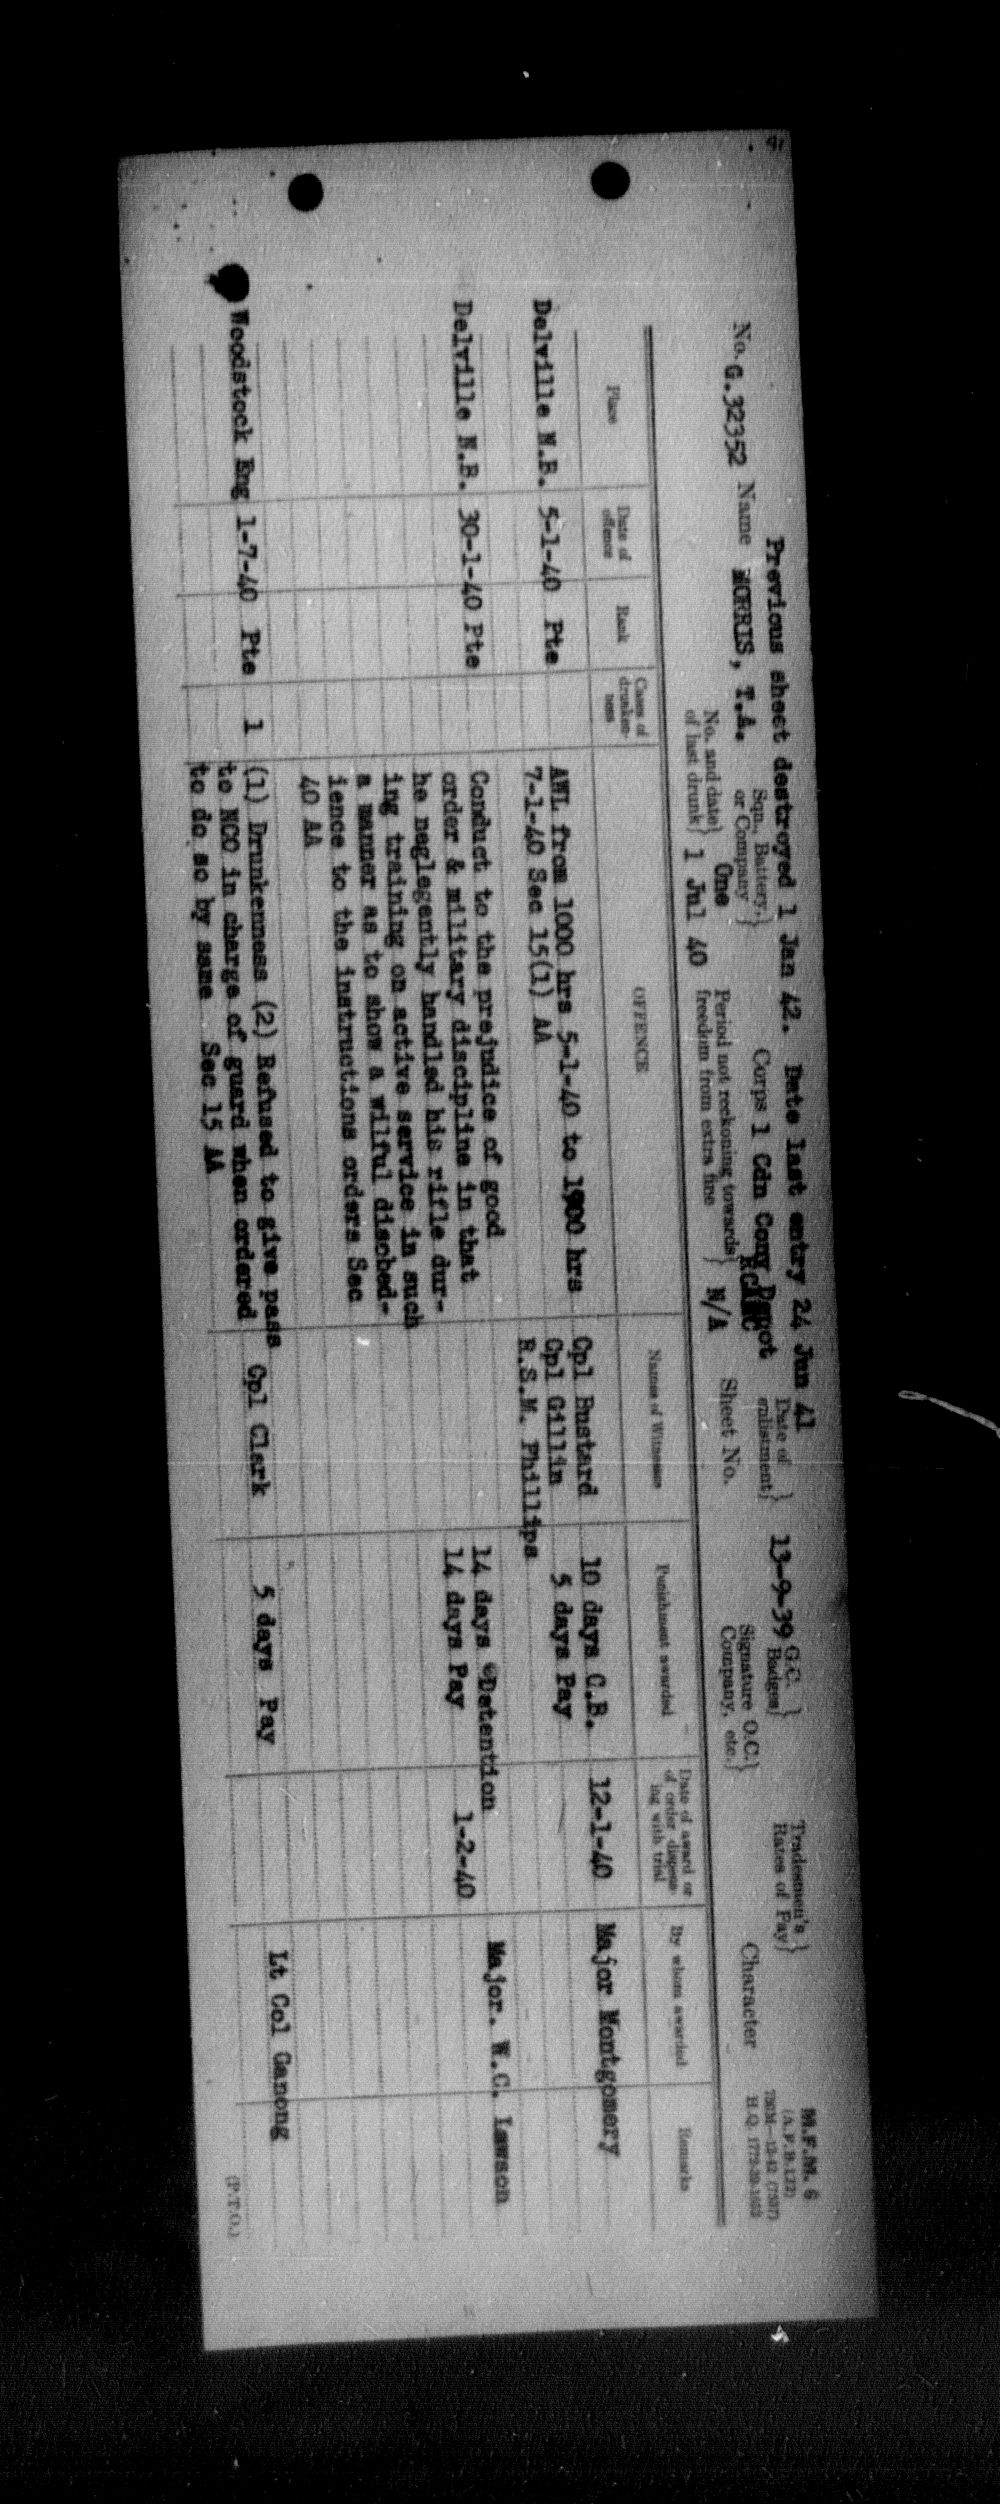 M.F.M. 6
(A.F.B.122)
H.Q. 1772-39-1683
Previous sheet destroyed 1 Jan 42. Date last entry 24 Jun 41
No. G.32352 Name MORRIS, T.A. Sqn., Battery, or Company} One Corps 1 Cdn Conv Depot RCAMC Date of enlistment} 13-9-39 G.C. Badges} Tradesmen's Rates of Pay}
No. and date of last drunk} 1 Jul 40 Period not reckoning towards freedom from extra fine} N/A Sheet No. Signature O.C. Company, etc.} Character
Place Date of offence Rank Cases of drunkenness OFFENCE Name of Witnesses Punishment awarded Date of award or of order dispensing with trial By whom awarded Remarks
Delville N.B. 5-1-40 Pte AWL from 1000 hrs 5-1-40 to 1900 hrs Cpl Bustard 10 days C.B. 12-1-40 Major Montgomery
7-1-40 Sec 15(1) AA Cpl Gillin 5 days Pay
R.S.M. Phillips
Delville N.B. 30-1-40 Pte Conduct to the prejudice of good 14 days Detention Major. W.C. Lawson
order & military discipline in that 14 days Pay 1-2-40
he neglegently handled his rifle dur-
ing training on active service in such
a manner as to show a wilful disobed-
ience to the instructions orders Sec
40 AA
Woodstock Eng 1-7-40 Pte 1 (1) Drunkenness (2) Refused to give pass Cpl Clark 5 days Pay Lt Col Ganong
to NCO in charge of guard when ordered
to do so by same Sec 15 AA
(P.T.O.)